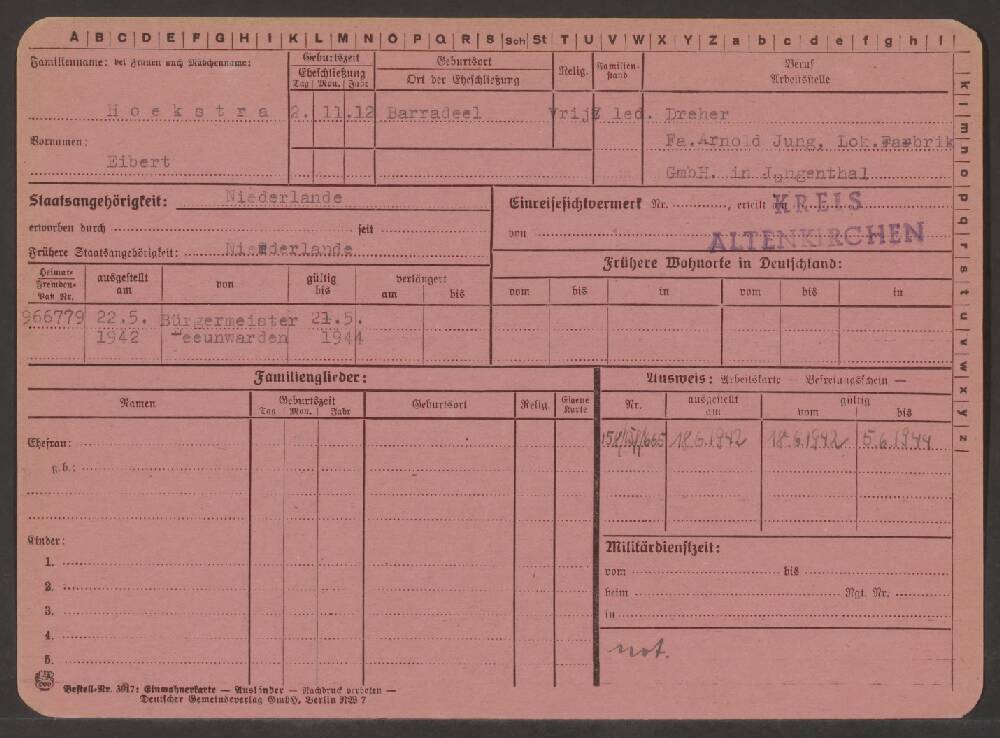 A B C D E F G H I K L M N O P Q R S Sch St T U V W X Y Z a b c d e f g h i
k l m n o p q r s t u v w x y z
Familienname: bei Frauen auch Mädchenname:
Geburtszeit
Eheschließung
Tag Mon. Jahr
Geburtsort
Ort der Eheschließung
Relig.
Familien-
stand
Beruf
Arbeitsstelle
Hoekstra 2. 11.12 Barradeel Vrijz led. Dreher
Vornamen:
Fa.Arnold Jung, Lok.Fabrik
Eibert
GmbH. in Jungenthal
Staatsangehörigkeit: Niederlande
erworben durch seit
Frühere Staatsangehörigkeit: Niederlande
Einreisesichtvermerk Nr. , erteilt am
von
KREIS
ALTENKIRCHEN
Heimat-
Fremden-
Paß Nr.
ausgestellt
am
von
gültig
bis
verlängert
am bis
Frühere Wohnorte in Deutschland:
vom bis in vom bis in
966779 22.5. Bürgermeister 21.5.
1942 Leeunwarden 1944
Familienglieder:
Namen
Geburtszeit
Tag Mon. Jahr
Geburtsort
Relig.
Eigene
Karte
Ausweis: Arbeitskarte — Befreiungsschein —
Nr.
ausgestellt
am
gültig
vom bis
18.6.1942 18.6.1942 5.6.1944
Ehefrau:
g.b.:
Kinder:
1.
2.
3.
4.
5.
Militärdienstzeit:
vom bis
beim Rgt. Nr.
in
not.
Bestell-Nr. 3017: Einwohnerkarte — Ausländer — Nachdruck verboten —
Deutscher Gemeindeverlag GmbH, Berlin NW 7